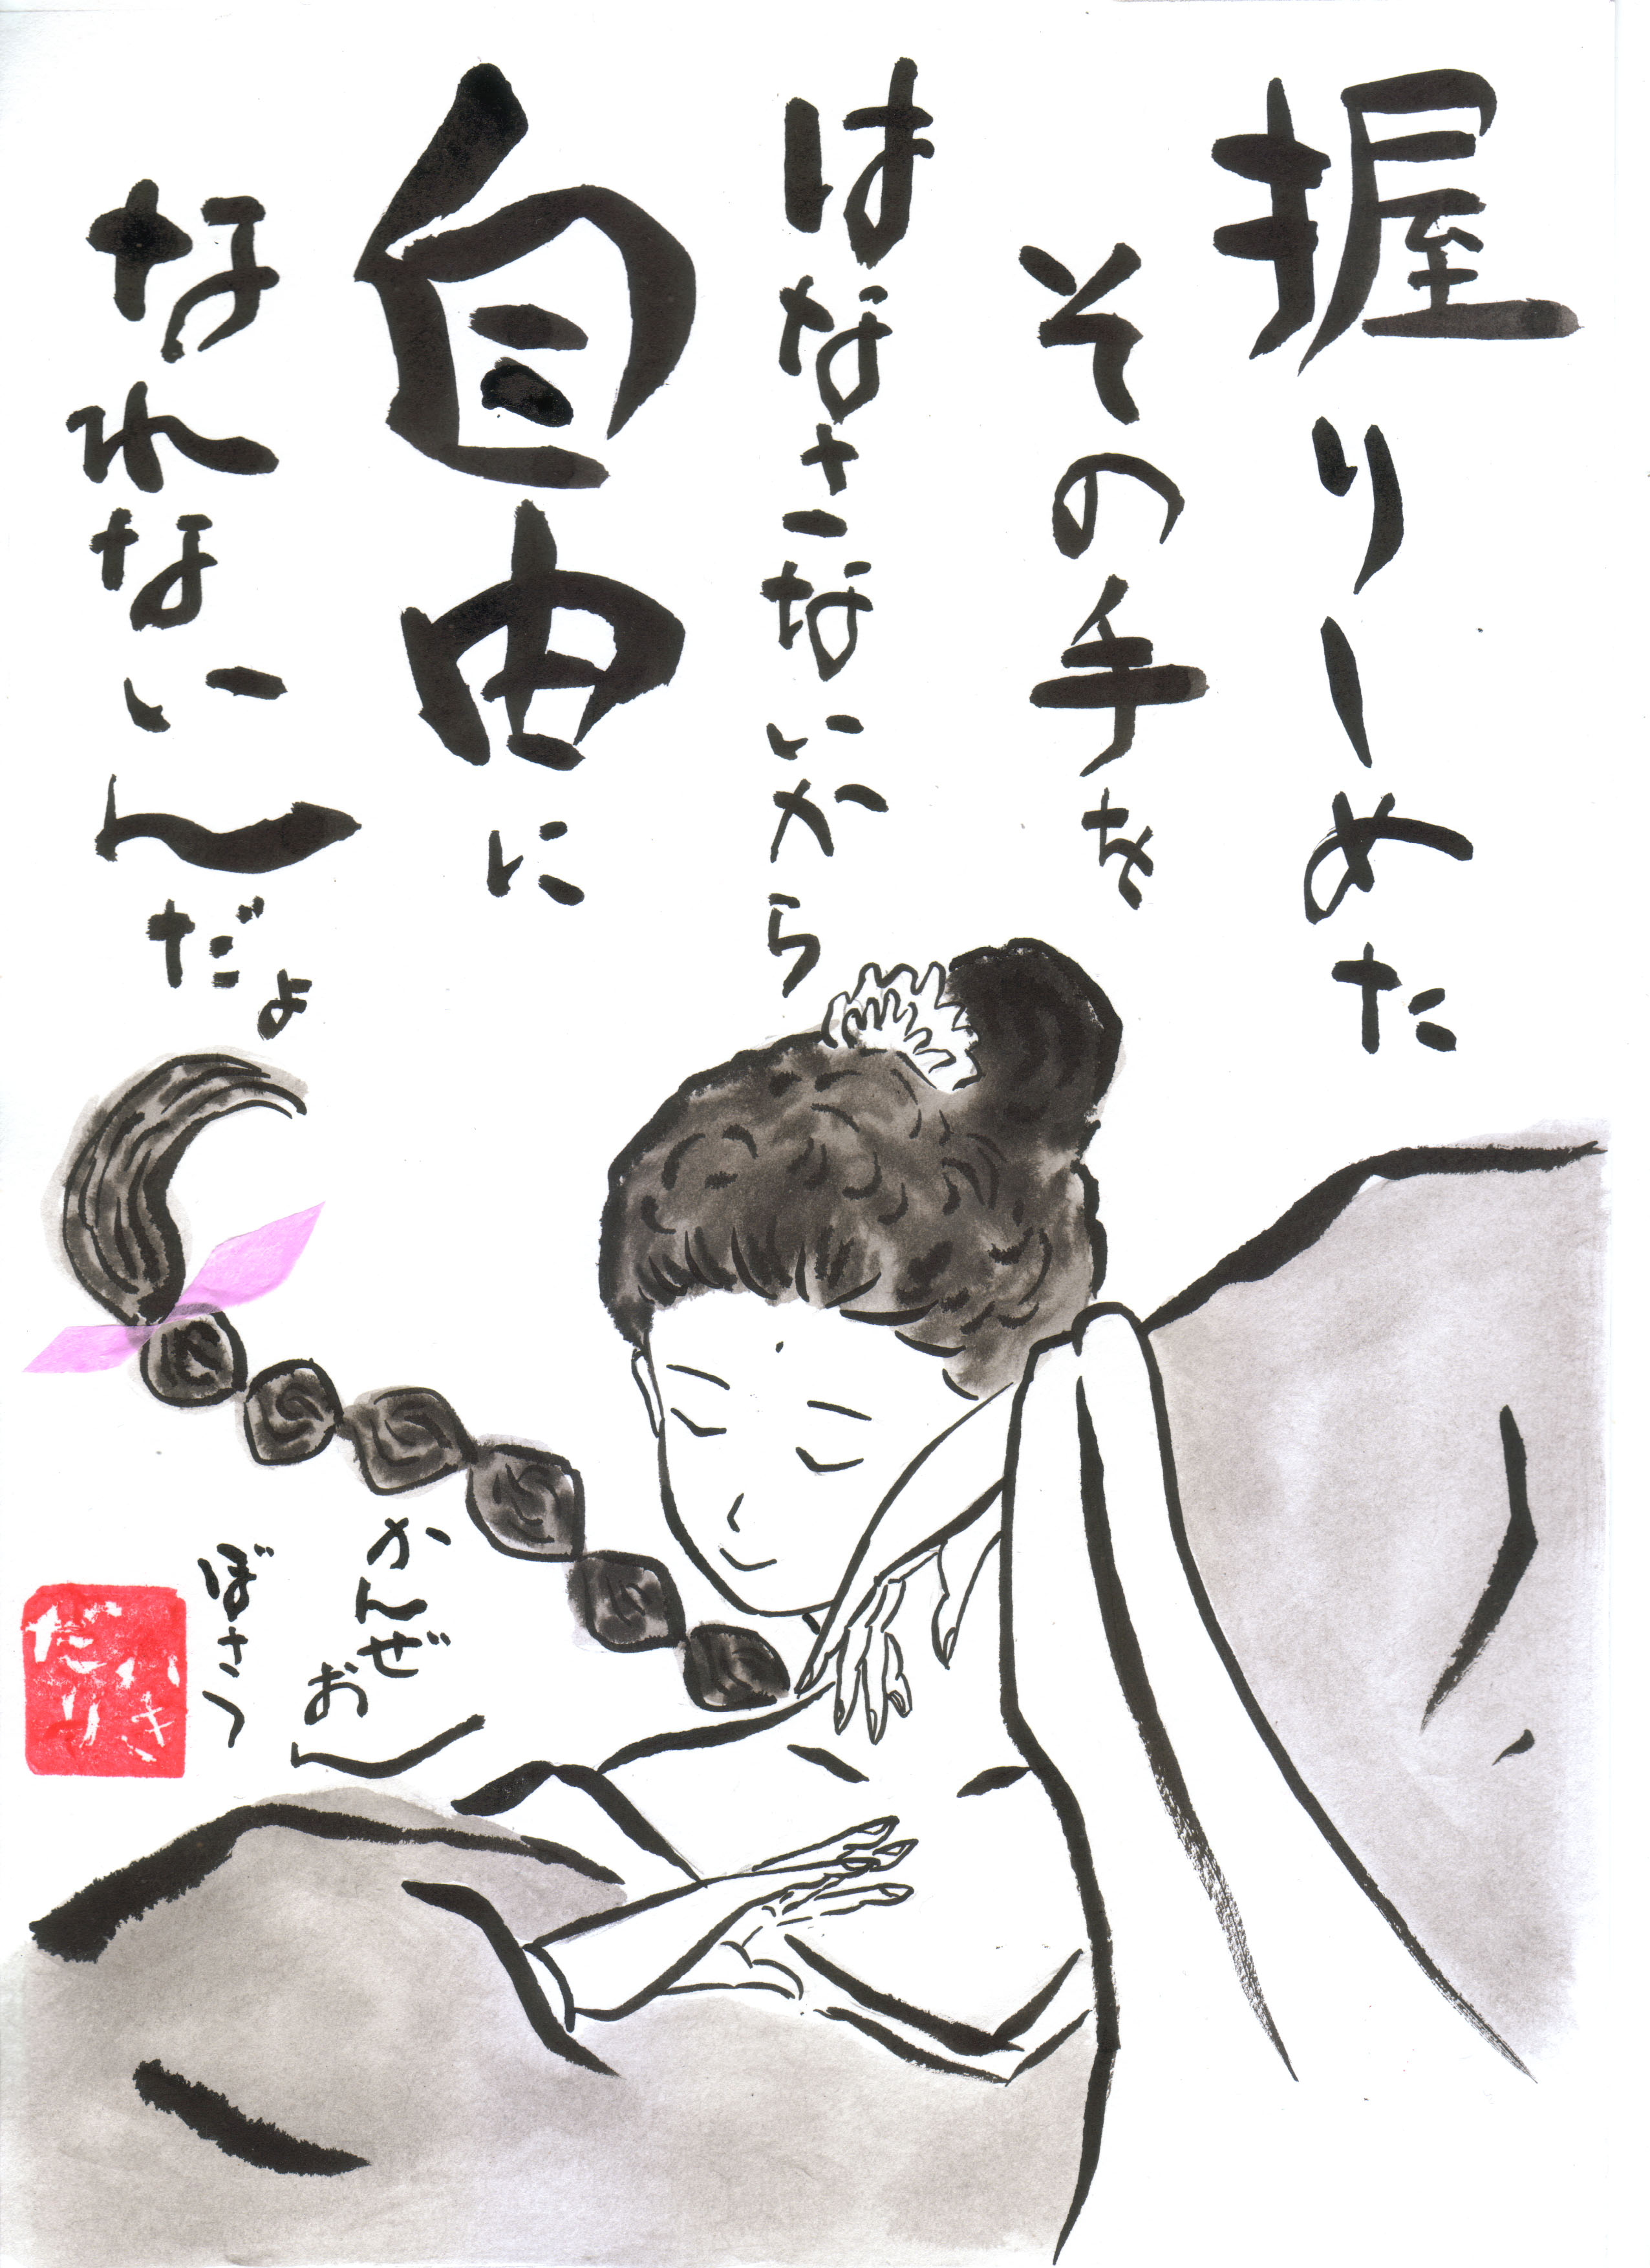 握りしめた
その手を
はなさないから
自由に
なれないんだよ
かんぜおん
ぼさつ